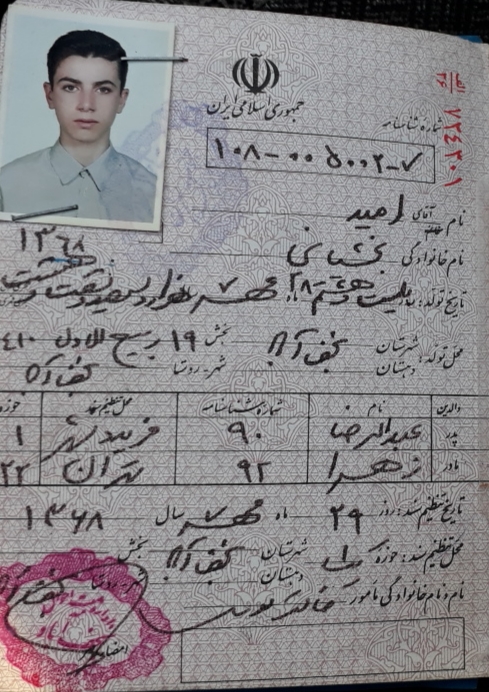 جمهوری اسلامی ایران
شماره شناسنامه
۱۰۸-۰۰۵۰۰۲-۷
۷۲۴۳۰۱
نام آقای امید
نام خانوادگی
۱۳۶۸
تاریخ تولد: بیست و هشتم ۲۸ ماه مهر هزار و سیصد و شصت و هشت
۱۹ ربیع الاول ۱۴۱۰
محل تولد: شهرستان نجف آباد بخش
دهستان شهر-روستا نجف آباد
والدین نام شماره شناسنامه محل تنظیم سند حوزه
پدر عبدالرضا ۹۰ فریدنشهر ۱
مادر زهرا ۹۲ تهران ۲۲
تاریخ تنظیم سند: روز ۲۹ ماه مهر سال ۱۳۶۸
محل تنظیم سند: حوزه شهرستان نجف آباد بخش
دهستان
نام و نام خانوادگی مامور
امضاء